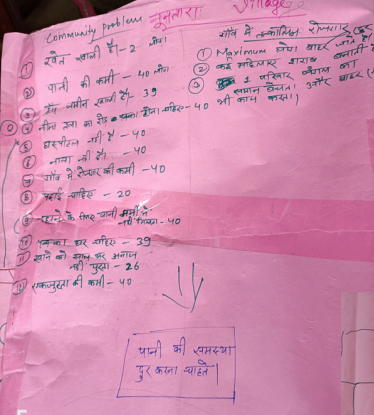 Community problem
चूनतारा
Village
① खेत खाली है - 2 लोग
② पानी की कमी - 40 लोग
③ जमीन खाली है - 39
④ का रोड होना चाहिए - 40
⑤ हास्पीटल नहीं है - 40
⑥ नाला नहीं है। - 40
⑦ गाँव में रोजगार की कमी - 40
⑧ चाहिए - 20
⑨ के लिए पानी नहीं मिलता - 40
⑩ पक्का घर चाहिए - 39
⑪ खाने को साल भर अनाज
नहीं जुटता - 26
⑫ एकजुटता की कमी - 40
गाँव में तत्कालिन रोजगार
① Maximum लोग बाहर जाते है।
② कई शराब बनाती है
③ 1 परिवार का
समान बेचता और बाहर
भी काम करता।
पानी की समस्या
दूर करना चाहते।